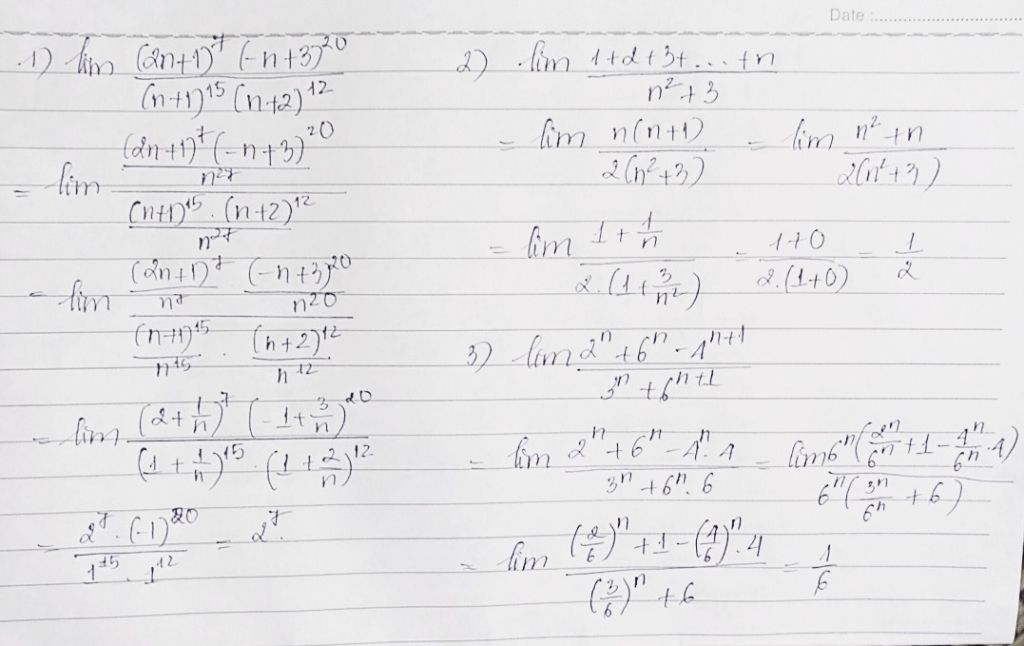 Date :
1) lim \frac{(2n+1)^7 (-n+3)^{20}}{(n+1)^{15} (n+2)^{12}}
= lim \frac{\frac{(2n+1)^7 (-n+3)^{20}}{n^{27}}}{\frac{(n+1)^{15} . (n+2)^{12}}{n^{27}}}
= lim \frac{\frac{(2n+1)^7}{n^7} \frac{(-n+3)^{20}}{n^{20}}}{\frac{(n+1)^{15}}{n^{15}} . \frac{(n+2)^{12}}{n^{12}}}
= lim \frac{(2+\frac{1}{n})^7 (-1+\frac{3}{n})^{20}}{(1+\frac{1}{n})^{15} . (1+\frac{2}{n})^{12}}
= \frac{2^7 . (-1)^{20}}{1^{15} . 1^{12}} = 2^7.
2) lim \frac{1+2+3+...+n}{n^2+3}
= lim \frac{n(n+1)}{2(n^2+3)} = lim \frac{n^2+n}{2(n^2+3)}
= lim \frac{1+\frac{1}{n}}{2.(1+\frac{3}{n^2})} = \frac{1+0}{2.(1+0)} = \frac{1}{2}
3) lim \frac{2^n+6^n-4^{n+1}}{3^n+6^{n+1}}
= lim \frac{2^n+6^n-4^n.4}{3^n+6^n.6} = lim \frac{6^n(\frac{2^n}{6^n}+1-\frac{4^n}{6^n}.4)}{6^n(\frac{3^n}{6^n}+6)}
= lim \frac{(\frac{2}{6})^n+1-(\frac{4}{6})^n.4}{(\frac{3}{6})^n+6} = \frac{1}{6}